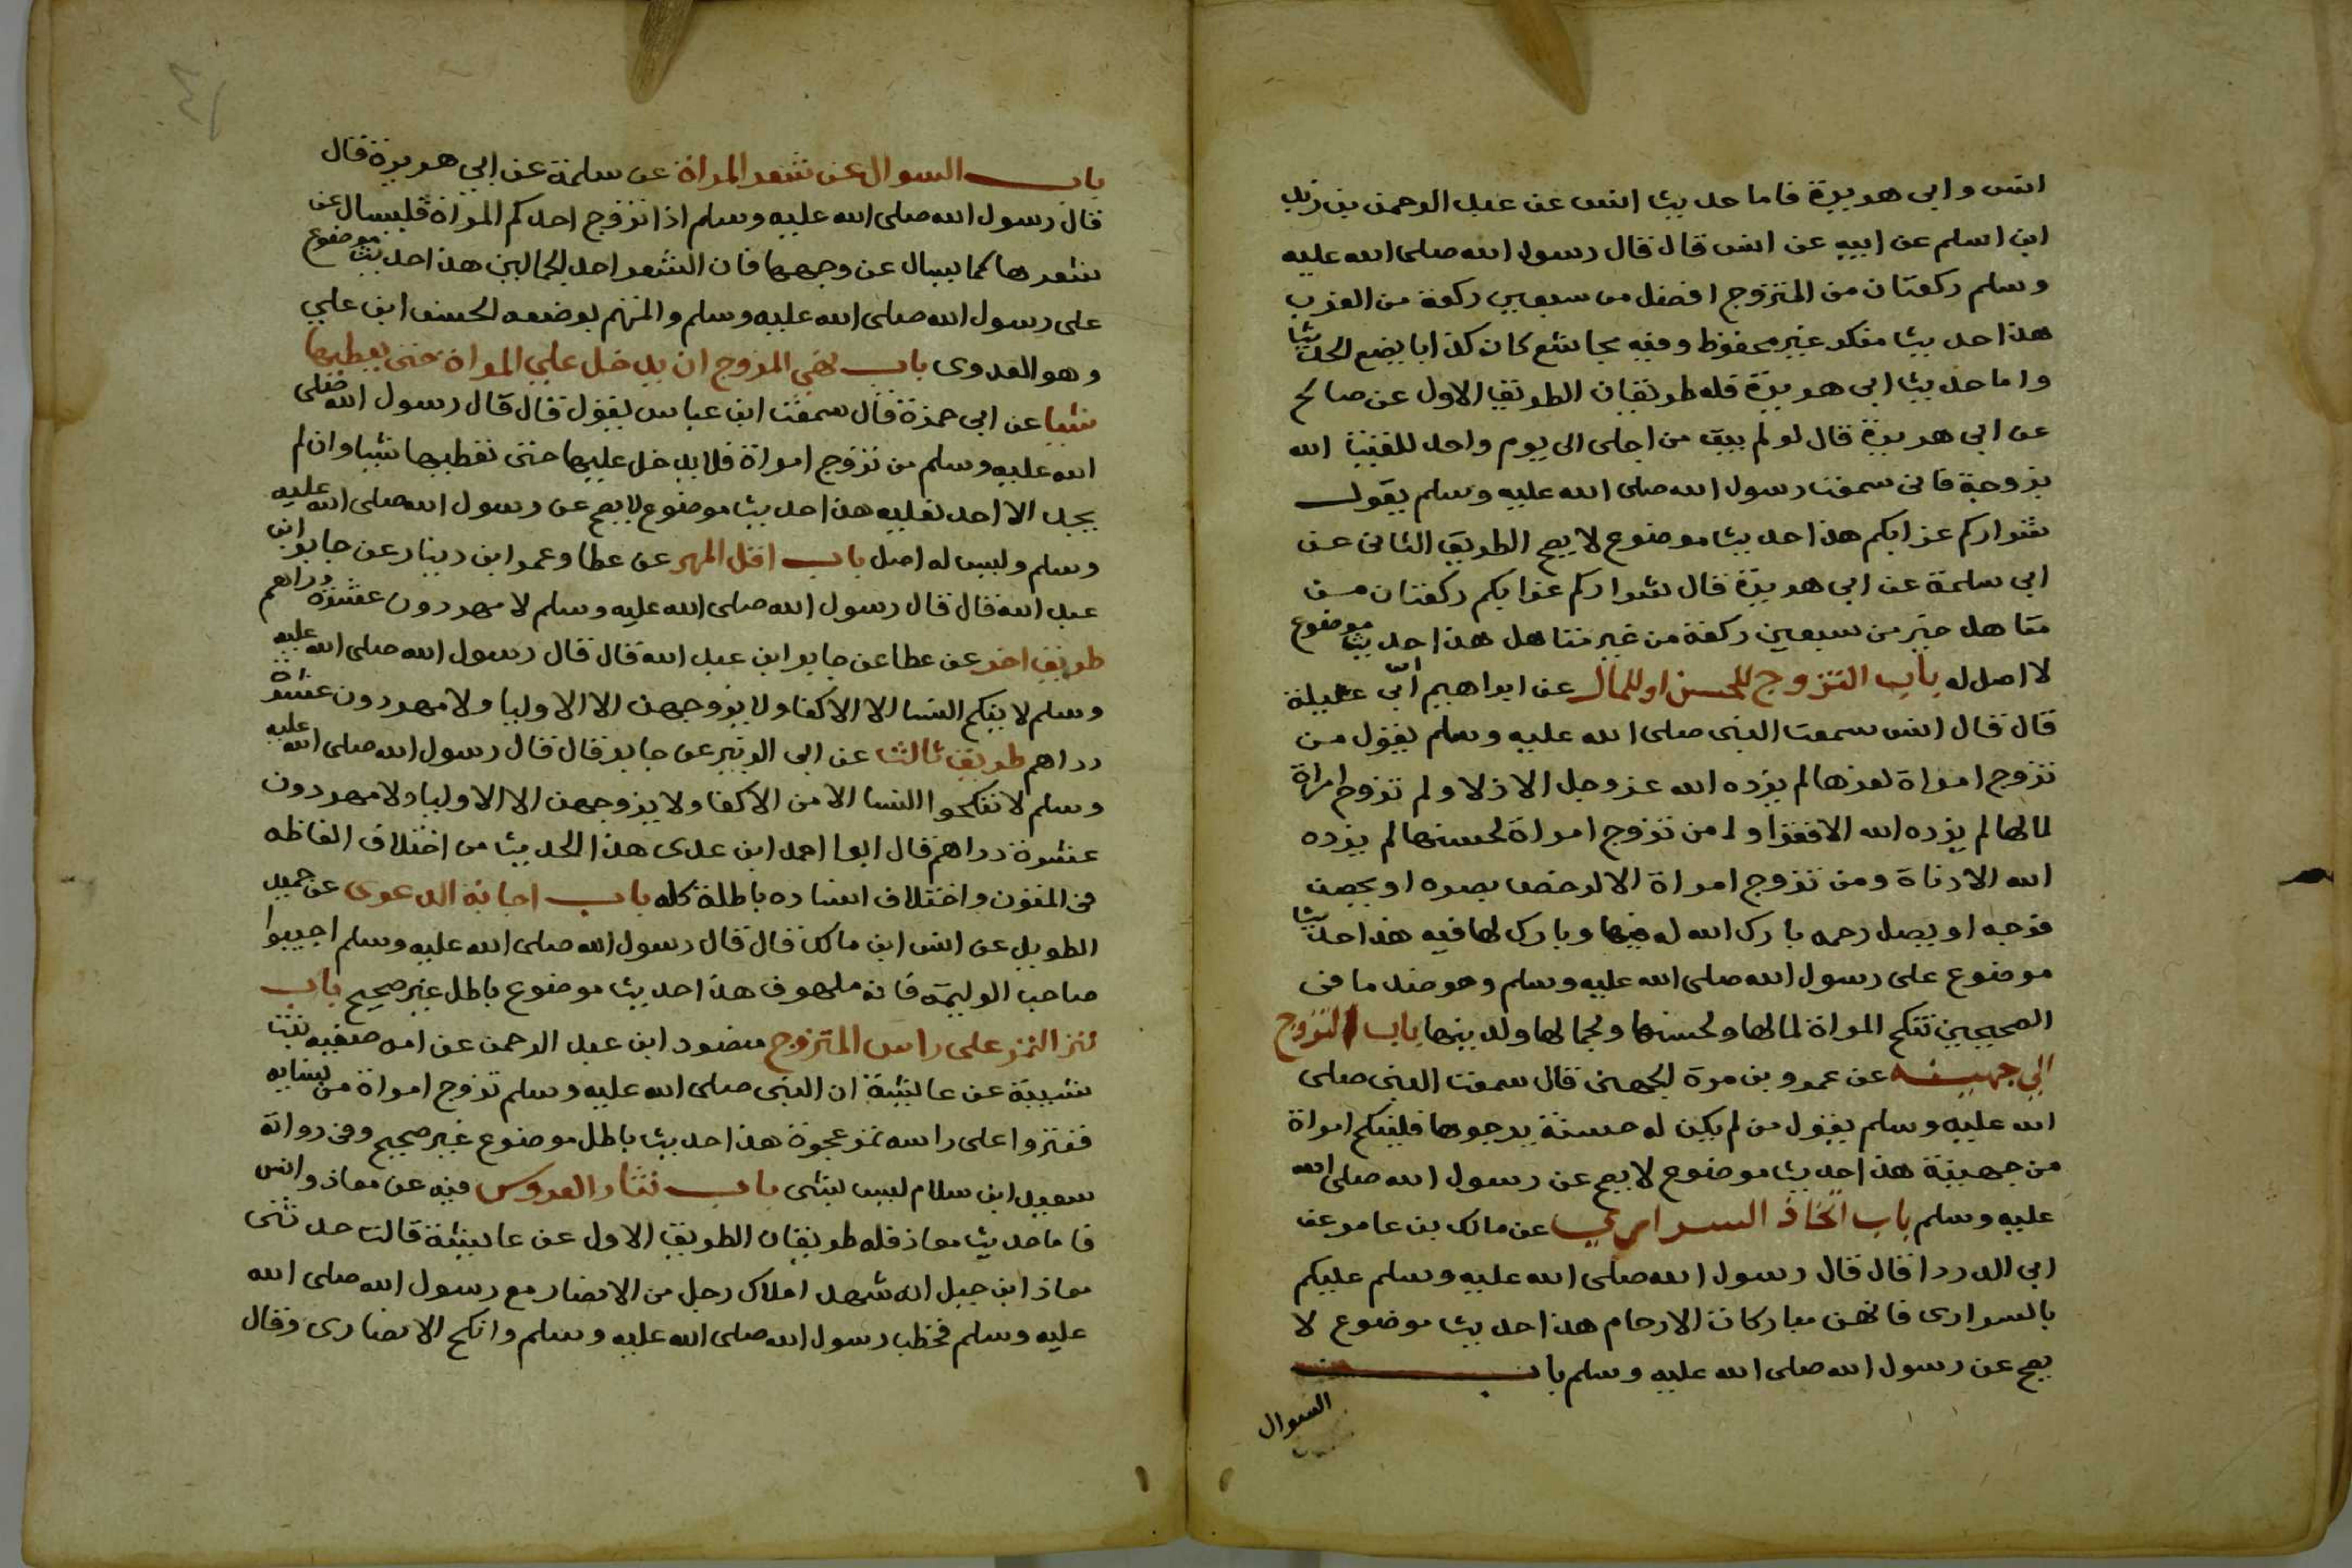 انس وابى هريرة فاما حديث انس عن عبد الرحمن بن زيد
ابن اسلم عن ابيه عن انس قال قال رسول الله صلى الله عليه
وسلم ركعتان من المتزوج افضل من سبعين ركعة من العزب
هذا حديث منكر غير محفوظ وفيه مجاشع كان كذابا يضع الحديث
واما حديث ابى هريرة فله طريقان الطريق الاول عن صالح
عن ابى هريرة قال لو لم يبق من اجلى الى يوم واحد للقيت الله
بزوجة فانى سمعت رسول الله صلى الله عليه وسلم يقول
شراركم عزابكم هذا حديث موضوع لا يصح الطريق الثانى عن
ابى سلمة عن ابى هريرة قال شراركم عزابكم ركعتان من
متاهل خير من سبعين ركعة من غير متاهل هذا حديث موضوع
لا اصل له باب التزوج للحسن او للمال عن ابراهيم ابى عبلة
قال قال انس سمعت النبى صلى الله عليه وسلم يقول من
تزوج امراة لعزها لم يزده الله عز وجل الا ذلا ولم تزوج امراة
لمالها لم يزده الله الا فقرا و من تزوج امراة لحسنها لم يزده
الله الا دناة ومن تزوج امراة الا لرخص بصره او يحصن
فرجه او يصل رحمه بارك الله له فيها وبارك لها فيه هذا حديث
موضوع على رسول الله صلى الله عليه وسلم وهو ضد ما فى
الصحيحين تنكح المراة لمالها ولحسنها ولجمالها ولدينها باب التزوج
الى جهينه عن عمرو بن مرة الجهنى قال سمعت النبى صلى
الله عليه وسلم يقول من لم يكن له حسنة يرجوها فلينكح امراة
من جهينة هذا حديث موضوع لا يصح عن رسول الله صلى الله
عليه وسلم باب اتخاذ السرارى عن مالك بن عامر عن
ابى الدردا قال قال رسول الله صلى الله عليه وسلم عليكم
بالسرارى فانهن مباركات الارحام هذا حديث موضوع لا
يصح عن رسول الله صلى الله عليه وسلم باب
السوال
باب السوال عن شعر المراة عن سلمة عن ابى هريرة قال
قال رسول الله صلى الله عليه وسلم اذا تزوج احدكم المراة فليسال عن
شعرها كما يسال عن وجهها فان الشعر احد الجمالين هذا حديث موضوع
على رسول الله صلى الله عليه وسلم والمتهم بوضعه الحسن ابن على
وهو العدوى باب نهى المزوج ان يدخل على المراة حتى يعطيها
شيا عن ابى حمزة قال سمعت ابن عباس يقول قال قال رسول الله صلى
الله عليه وسلم من تزوج امراة فلا يدخل عليها حتى تعطيها شيا وان لم
يجد الا احد نعليه هذا حديث موضوع لا يصح عن رسول الله صلى الله عليه
وسلم وليس له اصل باب اقل المهر عن عطا وعمرو ابن دينار عن جابر ابن
عبد الله قال قال رسول الله صلى الله عليه وسلم لا مهر دون عشرة دراهم
طريق اخر عن عطا عن جابر ابن عبد الله قال قال رسول الله صلى الله عليه
وسلم لا ينكح النسا الا الاكفا ولا يزوجهن الا الاوليا ولا مهر دون عشرة
دراهم طريق ثالث عن ابى الزبير عن جابر قال قال رسول الله صلى الله عليه
وسلم لا تنكحوا النسا الا من الاكفا ولا يزوجهن الا الاوليا ولا مهر دون
عشرة دراهم قال ابوا احمد ابن عدى هذا الحديث من اختلاف الفاظه
فى المتون واختلاف اسناده باطلة كله باب اجابة الدعوى عن حميد
الطويل عن انس ابن مالك قال قال رسول الله صلى الله عليه وسلم اجيبوا
صاحب الوليمة فانه ملهوف هذا حديث موضوع باطل غير صحيح باب
نثر التمر على راس المتزوج منصور ابن عبد الرحمن عن امه صفيه بنت
شيبة عن عايشة ان النبى صلى الله عليه وسلم تزوج امراة من نسايه
فنثروا على راسه تمر عجوة هذا حديث باطل موضوع غير صحيح وفى رواته
سعيد ابن سلام ليس بشى باب نثار العروس فيه عن معاذ وانس
فاما حديث معاذ فله طريقان الطريق الاول عن عايشة قالت حدثنى
معاذ ابن جبل انه شهد املاك رجل من الانصار مع رسول الله صلى الله
عليه وسلم فخطب رسول الله صلى الله عليه وسلم وانكح الانصارى وقال